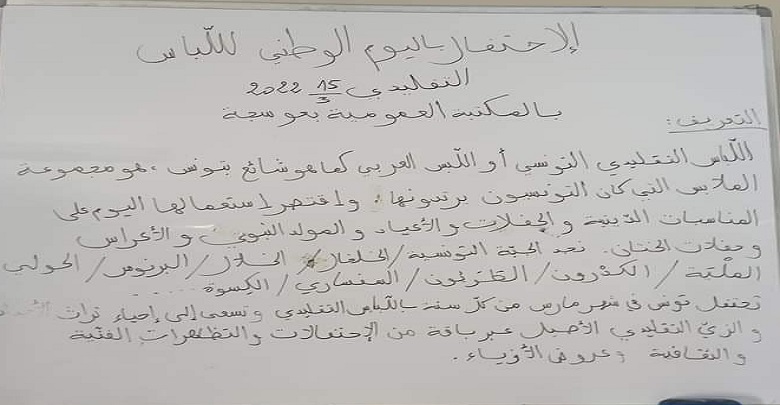 الإحتفال باليوم الوطني للّباس
التقليدي 15/3 2022
بالمكتبة العمومية بعوسجة
التعريف:
اللّباس التقليدي التونسي أو اللّبس العربي كما هو شائع بتونس، هو مجموعة
الملابس التي كان التونسيون يرتدونها. واقتصر استعمالها اليوم على
المناسبات الدّينية والحفلات والأعياد والمولد النبوي والأعراس
وحفلات الختان. نجد الجبّة التونسية / الخلخال / الخلال / البرنوس / الحولي
الملْيَة / الكدرون / القلزيون / السفساري / الكسوة ....
تحتفل تونس في شهر مارس من كلّ سنة باللّباس التقليدي وتسعى إلى إحياء تراث
والزيّ التقليدي الأصيل عبر باقة من الإحتفالات والتظاهرات الفنّية
والثقافية وعروض الأزياء.